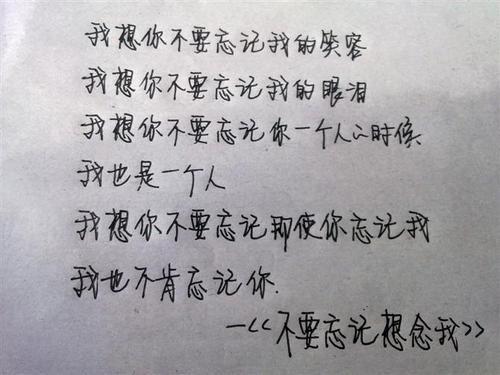 我想你不要忘记我的笑容
我想你不要忘记我的眼泪
我想你不要忘记你一个人的时候
我也是一个人
我想你不要忘记即使你忘记我
我也不肯忘记你.
—<<不要忘记想念我>>